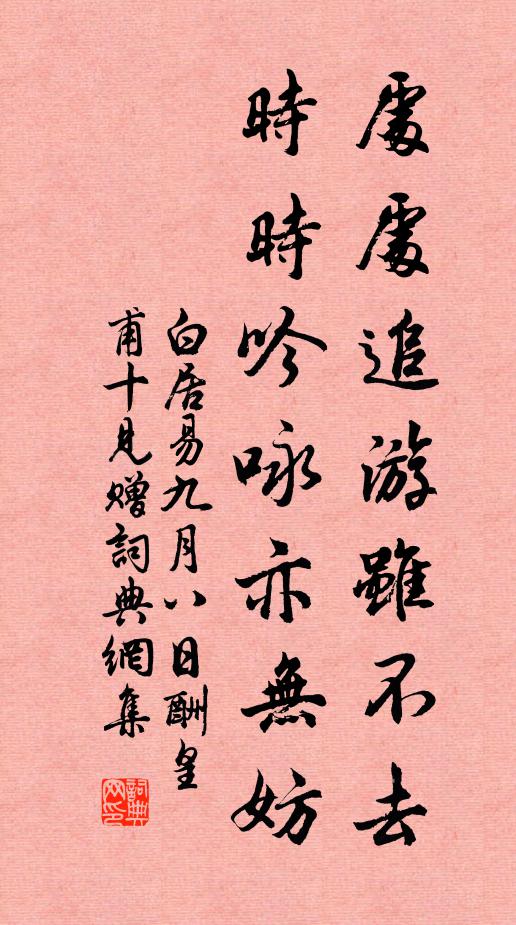 處處追游雖不去
時時吟咏亦無妨
白居易九月八日酬皇
甫十見贈詞典網集
詞典网印